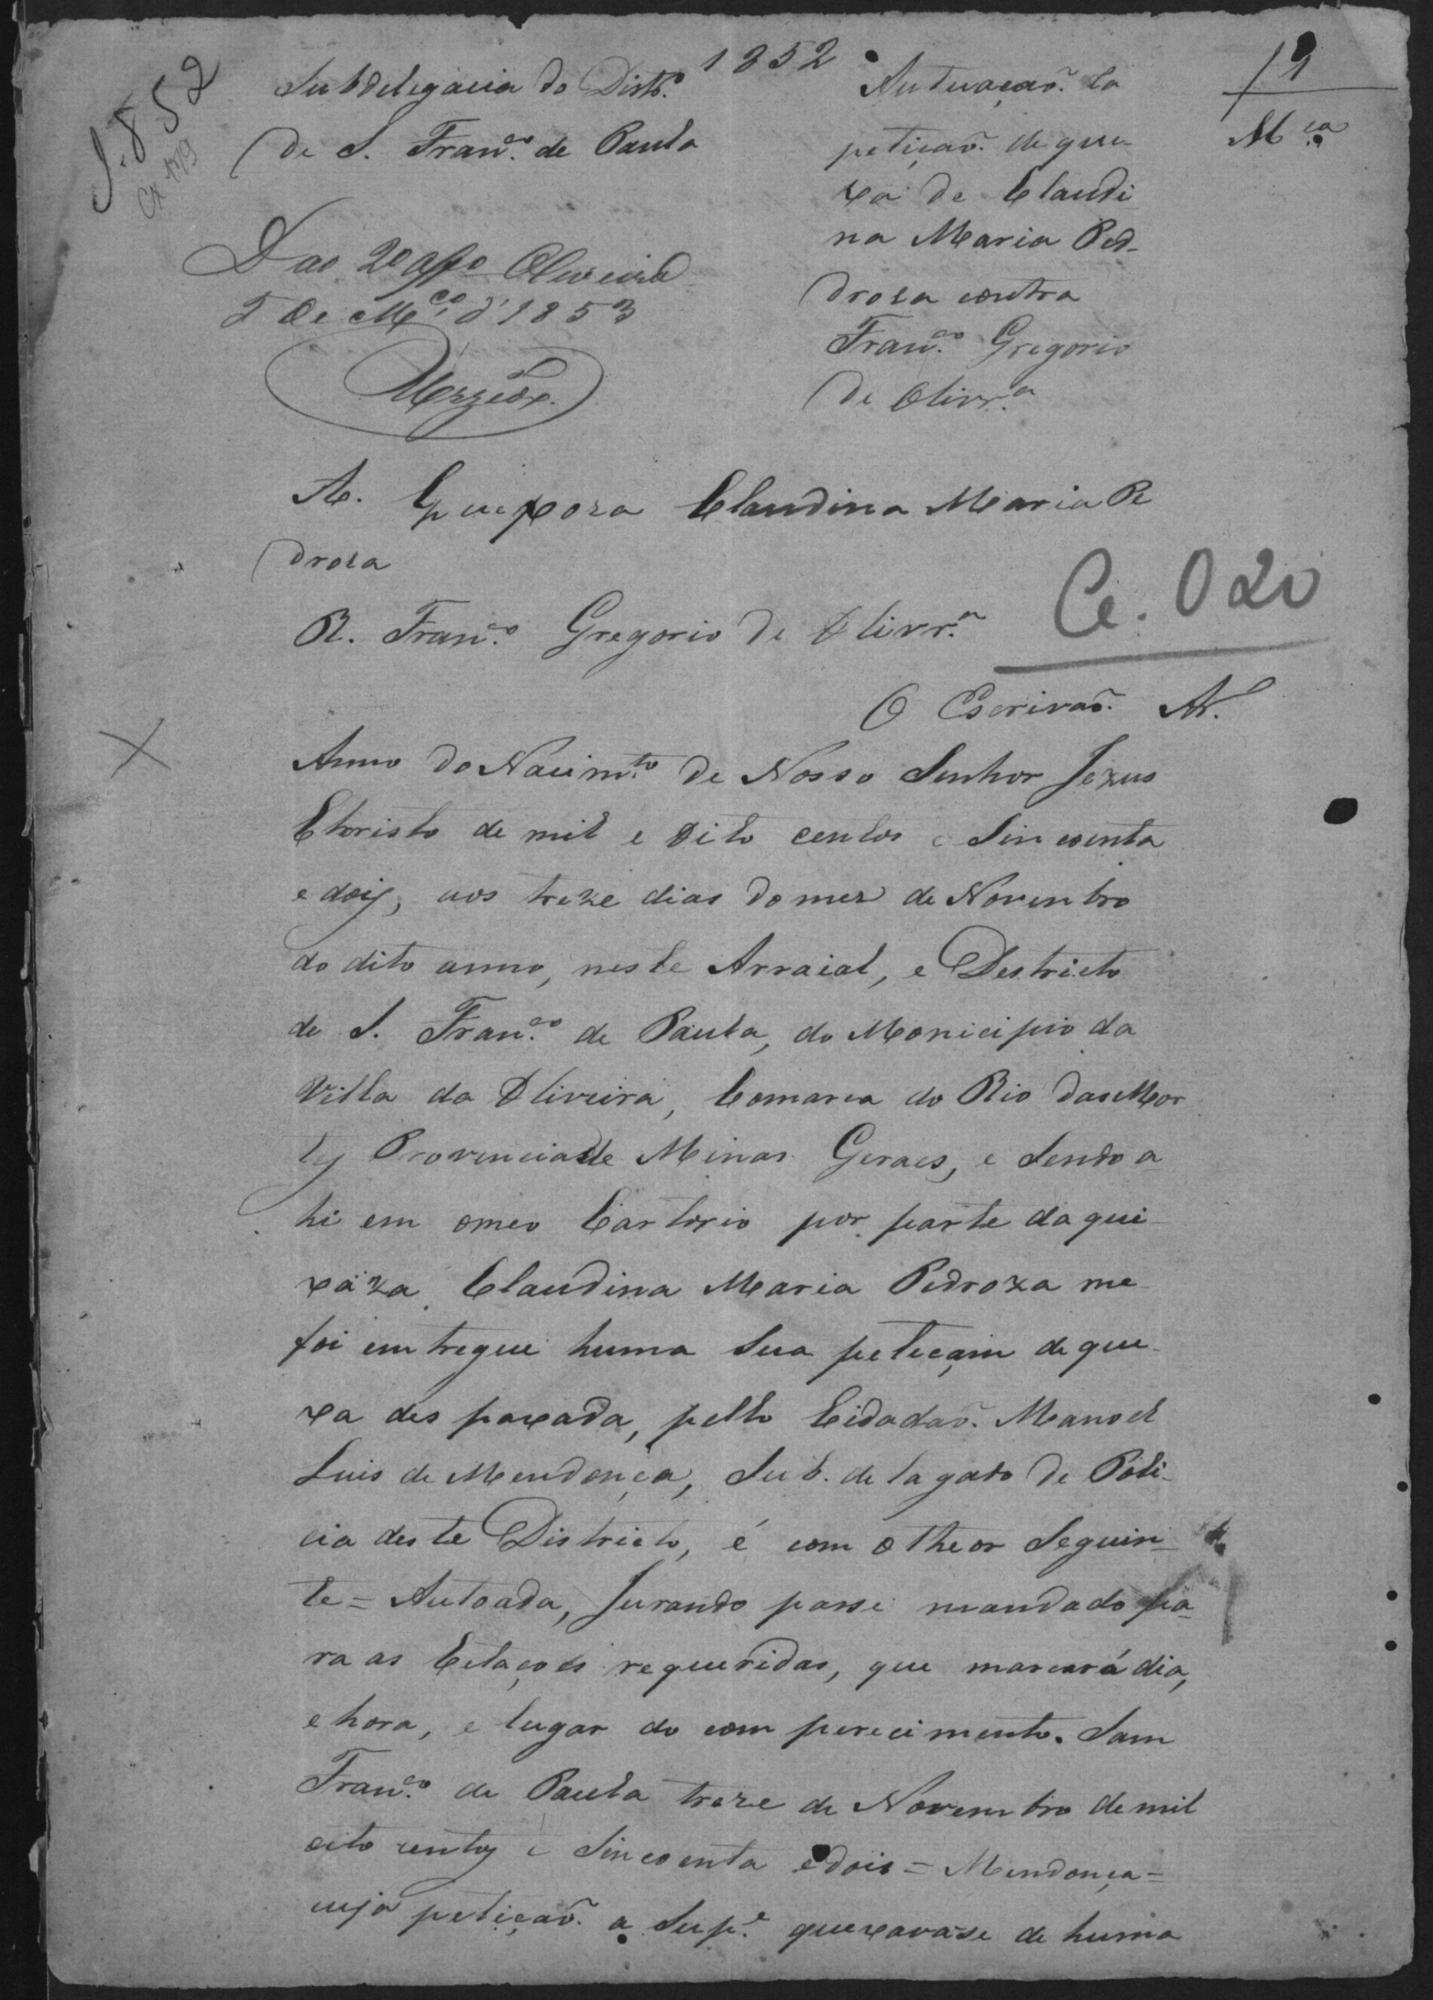 1852
1
Mᶜª
J. 852
Subdelegacia do Distrº
de S. Franᶜº de Paula
Autuaçaõ da
petiçaõ de que
xa de Claudi
na Maria Ped-
droza contra
Franᶜº Gregorio
de Olivrª
D ao 2º Offº Oliveira
2 de Mᶜº d'1853
A. Queixoza Claudina Maria Pe
droza
R. Franᶜº Gregorio de Olivrª
Ce. 020
O Escrivaõ Ar.
Anno do Nacimᵗº de Nosso Senhor Jezus
Christo de mil e Oito centos e Sincoenta
e dois, aos treze dias do mez de Novembro
do dito anno, neste Arraial, e Destricto
de S. Franᶜº de Paula, do Monicipio da
Villa da Oliveira, Comarca do Rio das Mor
tes Provincia de Minas Geraes, e Sendo a
hi em omeo Cartorio por parte da quei
xoza Claudina Maria Pedroza me
foi emtregue huma Sua peteçam de que
xa despaxada, pello Cidadaõ Manoel
Luis de Mendonça, Sub. delagado de Poli-
cia deste Districto, é com otheor Seguin-
te = Autoada, Jurando passe mandado pa-
ra as Citaçoes requeridas, que marcará dia,
e hora, e lugar do comparecimento. Sam
Franᶜº de Paula treze de Novembro de mil
oito centos e Sincoenta e dois = Mendonça =
cuja petiçaõ a Supᵉ quexavase de huma